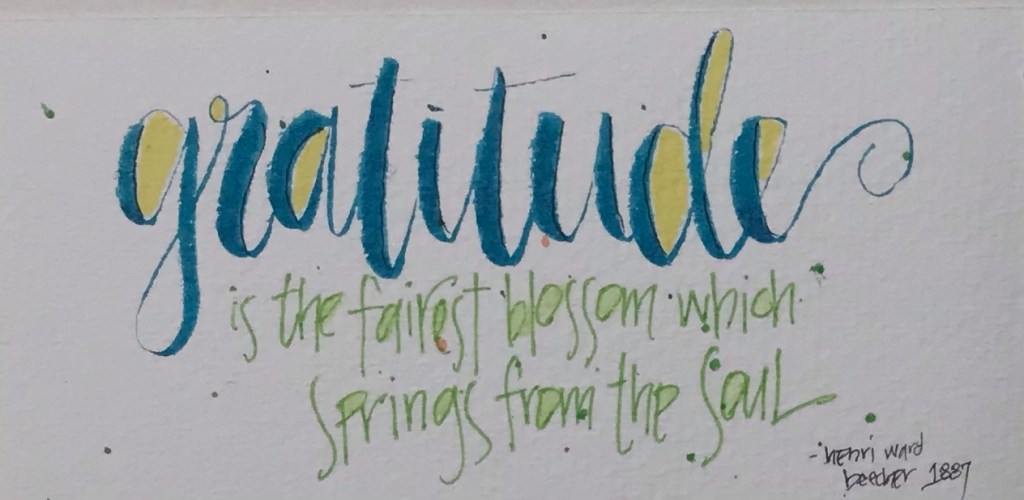 gratitude
is the fairest blossom which
springs from the soul
-henri ward
beecher 1887